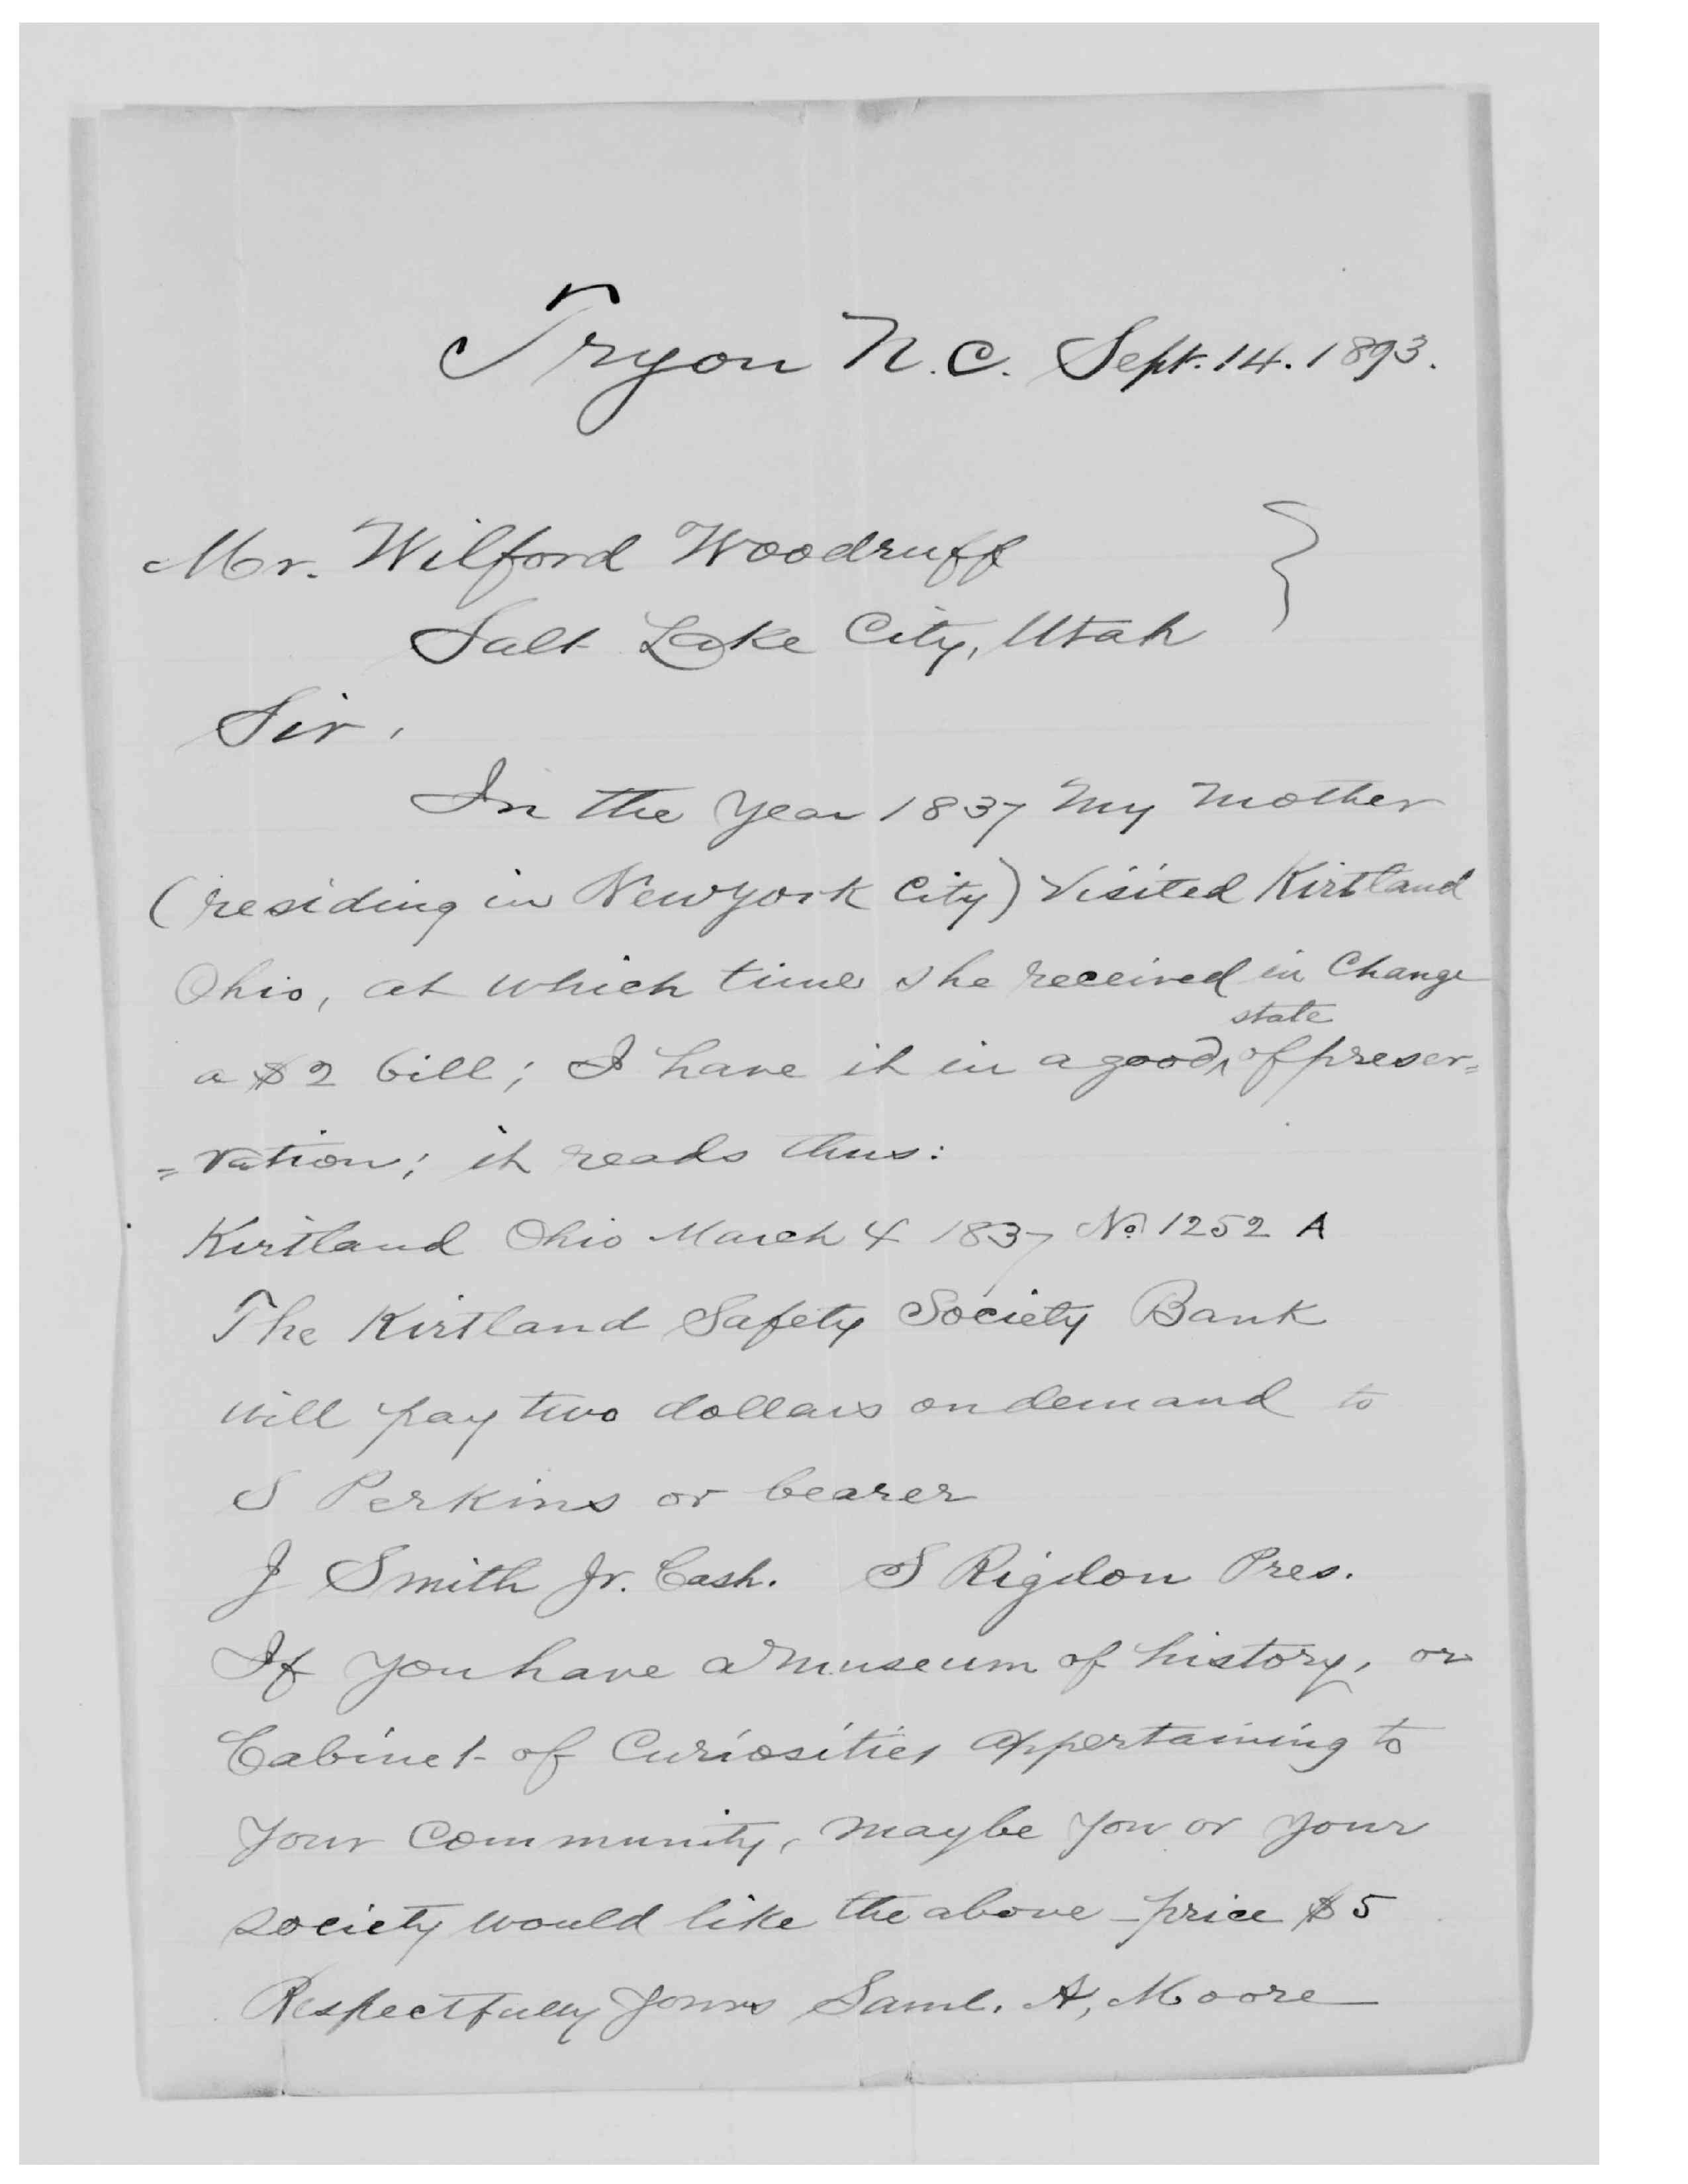 Tryon N.C. Sept. 14. 1893.
Mr. Wilford Woodruff
Salt Lake City, Utah
Sir,
In the year 1837 My Mother
(residing in New York City) Visited Kirtland
Ohio, at which time she received in Change
state
a $2 bill; I have it in a good ^ of preser=
=vation; it reads thus:
Kirtland Ohio March 4 1837 No. 1252 A
The Kirtland Safety Society Bank
will pay two dollars on demand to
S Perkins or bearer
J Smith Jr. Cash. S Rigdon Pres.
If you have a museum of history, or
Cabinet of Curiosities appertaining to
your Community, maybe you or your
society would like the above - price $5
Respectfully yours Saml. A, Moore